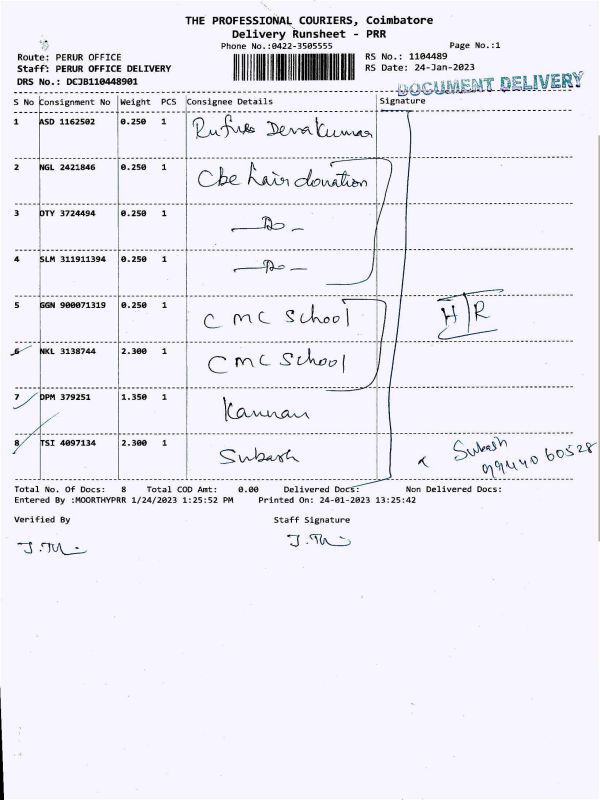 THE PROFESSIONAL COURIERS, Coimbatore
Delivery Runsheet - PRR
Phone No.:0422-3505555 Page No.:1
Route: PERUR OFFICE RS No.: 1104489
Staff: PERUR OFFICE DELIVERY RS Date: 24-Jan-2023
DRS No.: DCJB110448901
DOCUMENT DELIVERY
S No Consignment No Weight PCS Consignee Details Signature
1 ASD 1162502 0.250 1 Rufus Devakumar
2 NGL 2421846 0.250 1 Cbe hair donation
3 DTY 3724494 0.250 1 —Do—
4 SLM 311911394 0.250 1 —Do—
5 GGN 900071319 0.250 1 CMC School H/R
6 NKL 3138744 2.300 1 CMC School
7 DPM 379251 1.350 1 Kannan
8 TSI 4097134 2.300 1 Subash x Subash
9944060528
Total No. Of Docs: 8 Total COD Amt: 0.00 Delivered Docs: Non Delivered Docs:
Entered By :MOORTHYPRR 1/24/2023 1:25:52 PM Printed On: 24-01-2023 13:25:42
Verified By Staff Signature